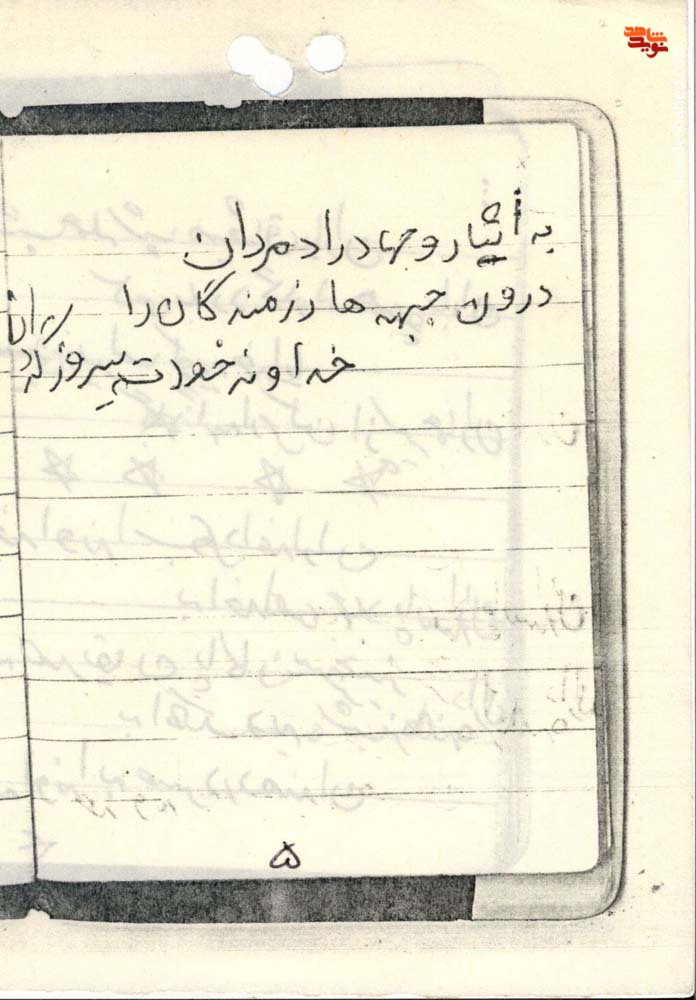 نوید شاهد
به أثیار و جهاد رادمردان
درون جبهه ها رزمندگان را
خداوندا خودت پیروز گردان
۵